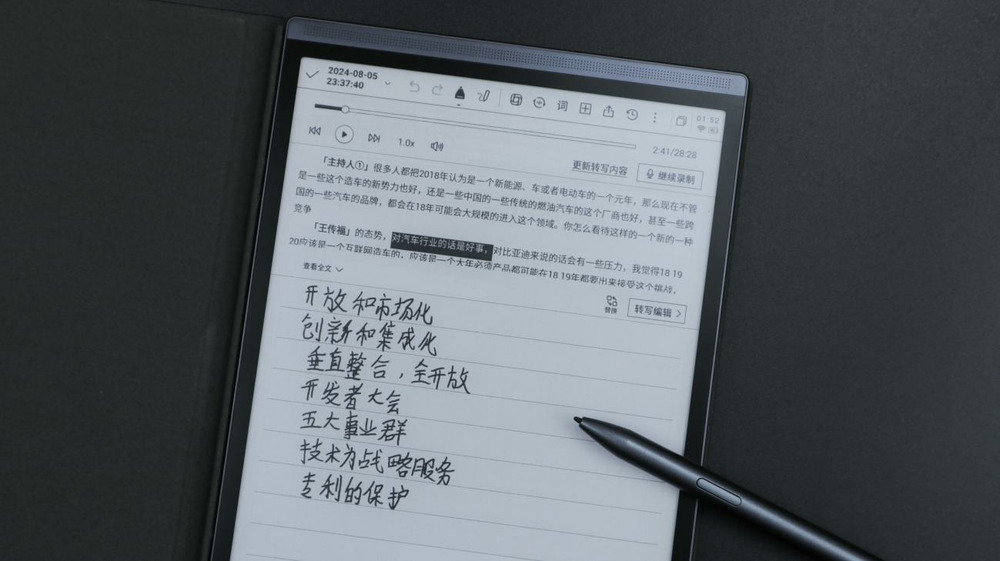 2024-08-05
23:37:40
词
01:52
2:41/28:28
1.0x
更新转写内容
继续录制
「主持人①」很多人都把2018年认为是一个新能源、车或者电动车的一个元年，那么现在不管
是一些这个造车的新势力也好，还是一些中国的一些传统的燃油汽车的这个厂商也好，甚至一些跨
国的一些汽车的品牌，都会在18年可能会大规模的进入这个领域。你怎么看待这样的一个新的一种
竞争
「王传福」的态势，对汽车行业的话是好事，对比亚迪来说的话会有一些压力，我觉得18 19
20应该是一个互联网造车的，应该是一个大年必须产品都可能在18 19年都要出来接受这个挑战，
查看全文
替换
转写编辑
开放和市场化
创新和集成化
垂直整合，全开放
开发者大会
五大事业群
技术为战略服务
专利的保护